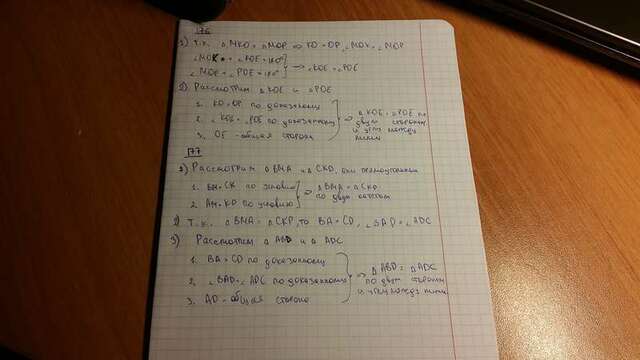 176
1) т.к. △MKO = △MOP ⇒ KO = OP, ∠MOK = ∠MOP
∠MOK + ∠KOE = 180°
∠MOP + ∠POE = 180° } ⇒ ∠KOE = ∠POE
2) Рассмотрим △KOE и △POE
1. KO = OP по доказанному
2. ∠KOE = ∠POE по доказанному
3. OE - общая сторона } ⇒ △KOE = △POE по двум сторонам и углу между ними
177
1) Рассмотрим △BMA и △CKD они прямоугольные
1. BM = CK по условию
2. AM = KD по условию } ⇒ △BMA = △CKD по двум катетам
2) Т.к. △BMA = △CKD то BA = CD, ∠BAD = ∠ADC
3) Рассмотрим △ABD и △ADC
1. BA = CD по доказанному
2. ∠BAD = ∠ADC по доказанному
3. AD - общая сторона } ⇒ △ABD = △ADC по двум сторонам и углу между ними